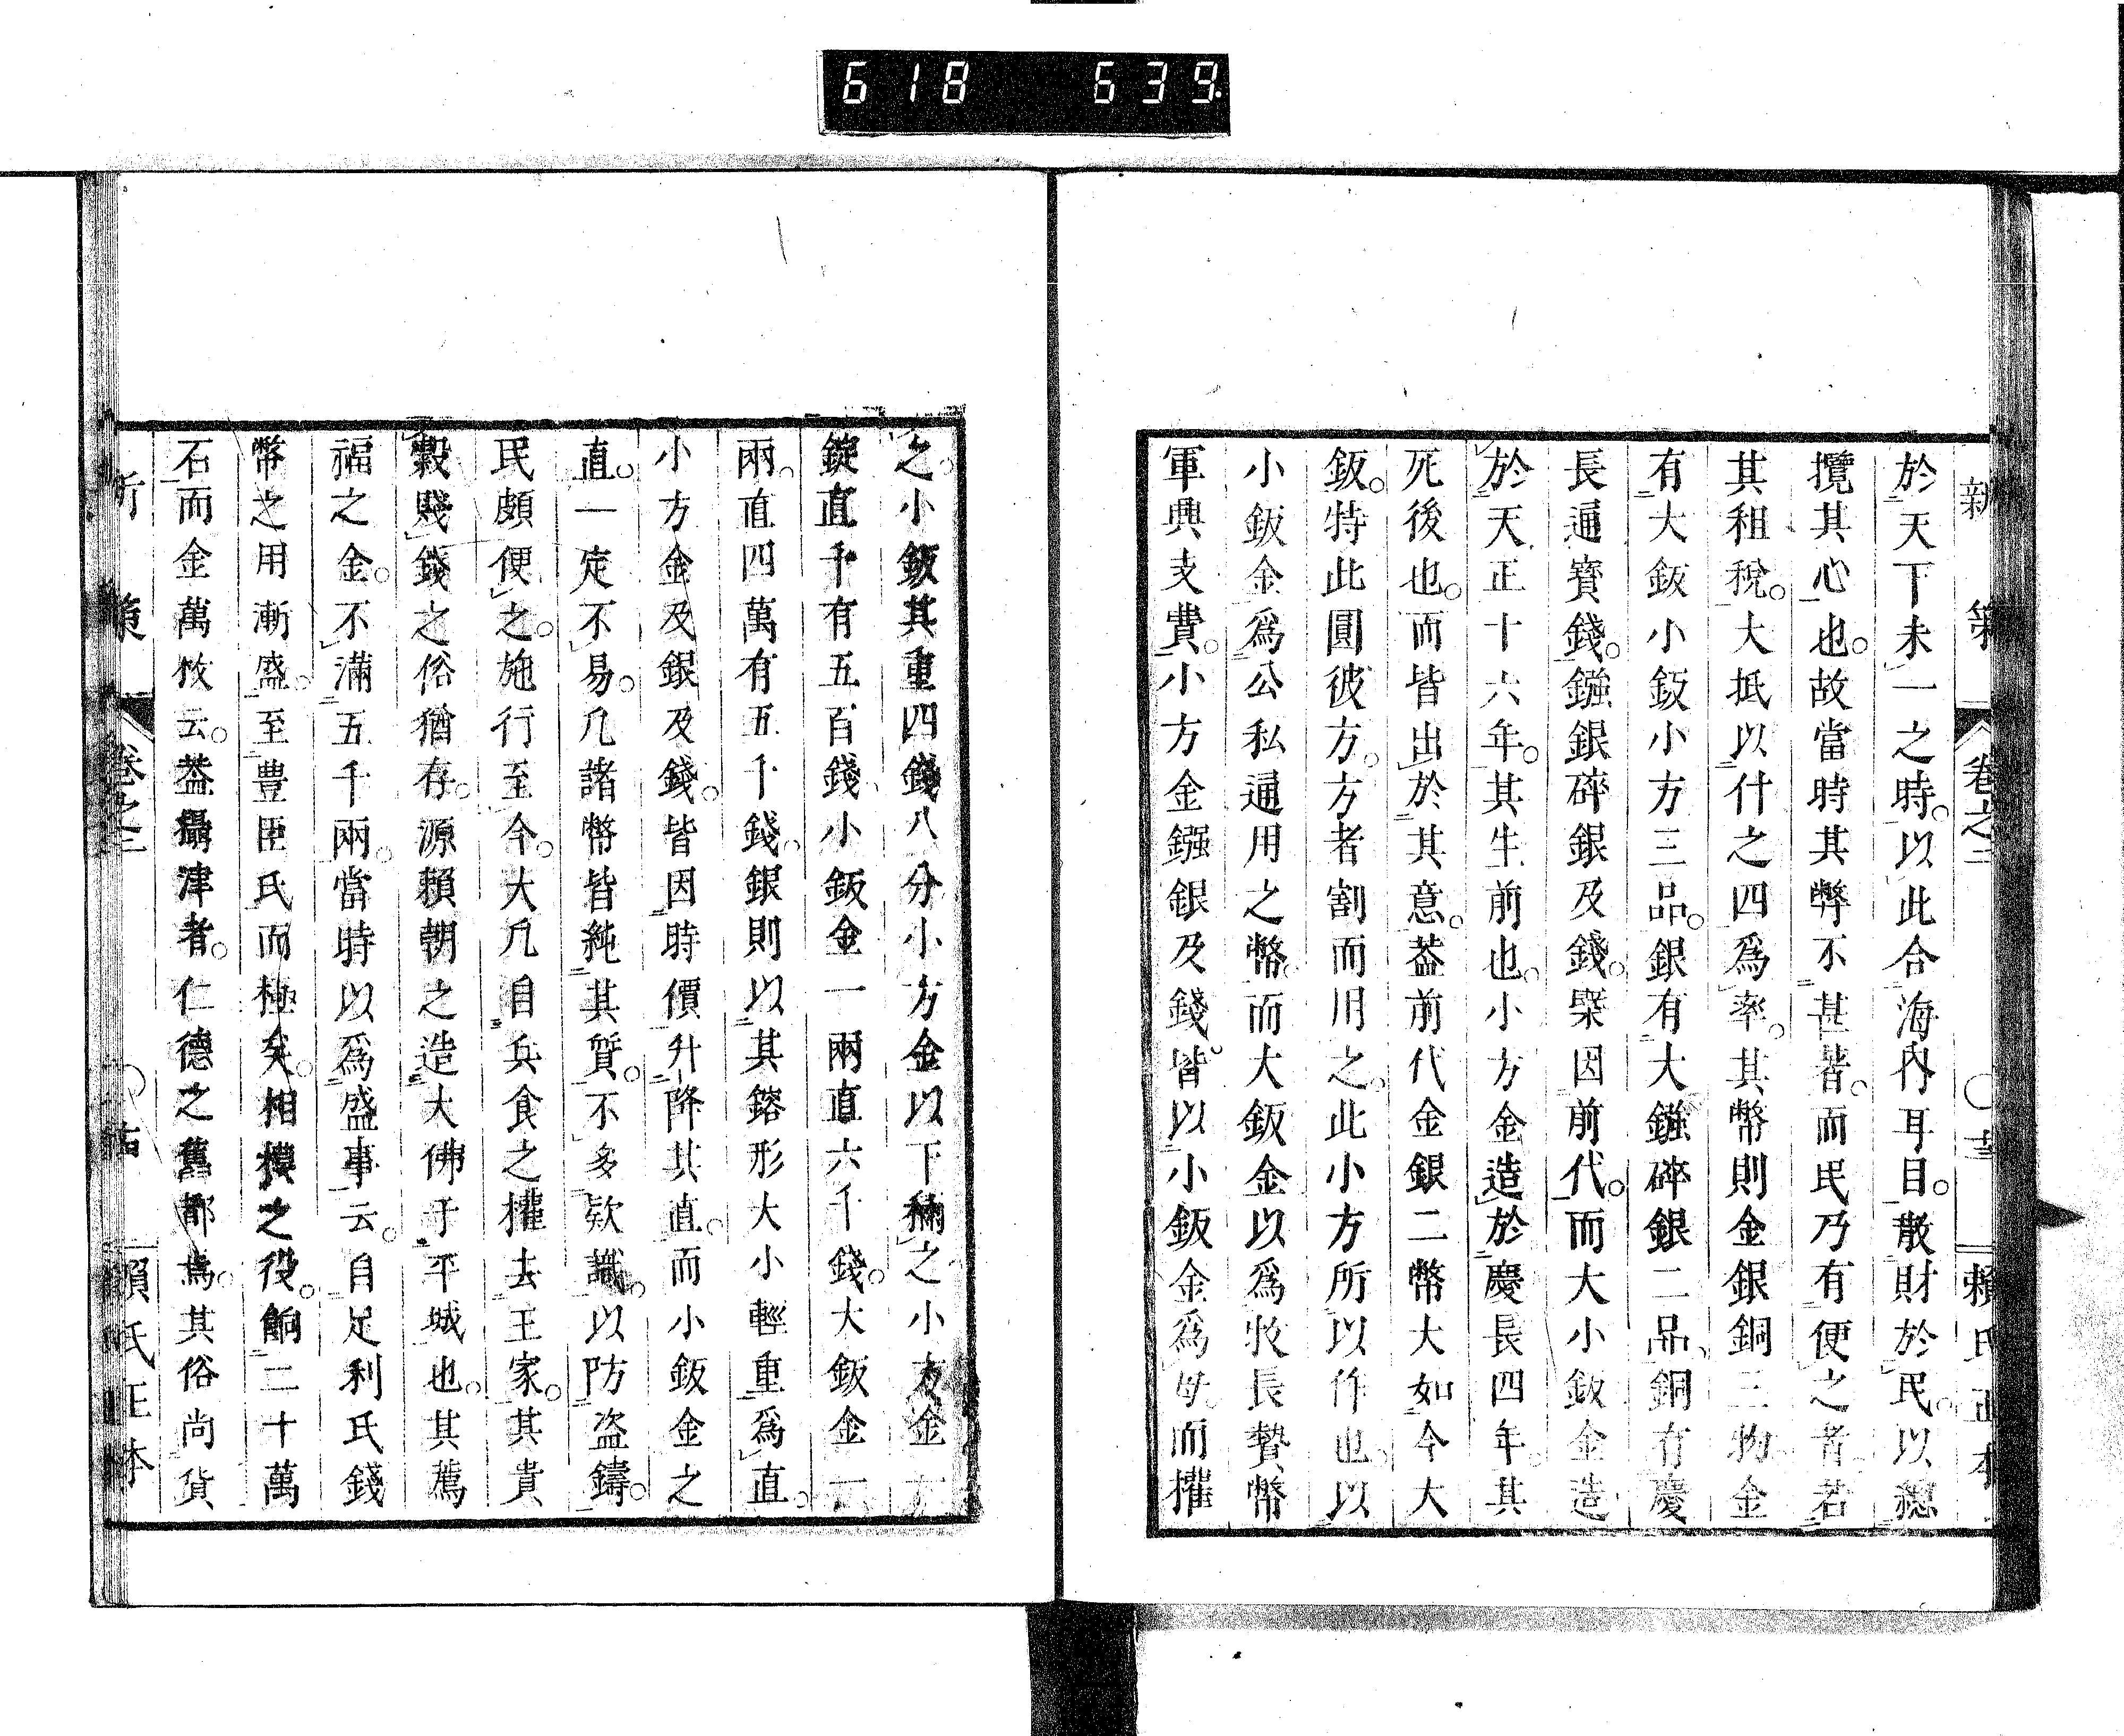 618 639.
新策 卷之三 ○十三 賴氏正本
於天下未一之時。以此合海內耳目。散財於民。以總
攬其心也。故當時其弊不甚著。而民乃有便之者。若
其租稅。大抵以什之四爲率。其幣則金銀銅三物。金
有大鈑小鈑小方三品。銀有大鏹碎銀二品。銅有慶
長通寶錢。鏹銀碎銀及錢。槩因前代。而大小鈑金造
於天正十六年。其生前也。小方金造於慶長四年。其
死後也。而皆出於其意。葢前代金銀二幣大如今大
鈑。特此圓彼方。方者割而用之。此小方所以作也。以
小鈑金爲公私通用之幣。而大鈑金以爲收長贄幣
軍興支費。小方金鏹銀及錢。皆以小鈑金爲母。而權
之。小鈑其重四錢八分。小方金以下稱之。小方金一
錠直千有五百錢。小鈑金一兩直六千錢。大鈑金一
兩。直四萬有五千錢。銀則以其鎔形大小輕重爲直。
小方金及銀及錢。皆因時價升降其直。而小鈑金之
直。一定不易。凡諸幣皆純其質。不多欵識。以防盜鑄。
民頗便之。施行至今。大凡自兵食之權去王家。其貴
穀賤錢之俗猶存。源賴朝之造大佛于平城也。其薦
福之金。不滿五千兩。當時以爲盛事云。自足利氏錢
幣之用漸盛。至豊臣氏而極矣。相摸之役。餉二十萬
石而金萬枚云。葢攝津者。仁德之舊都焉。其俗尚貨
新策 卷之三 ○十四 賴氏正本